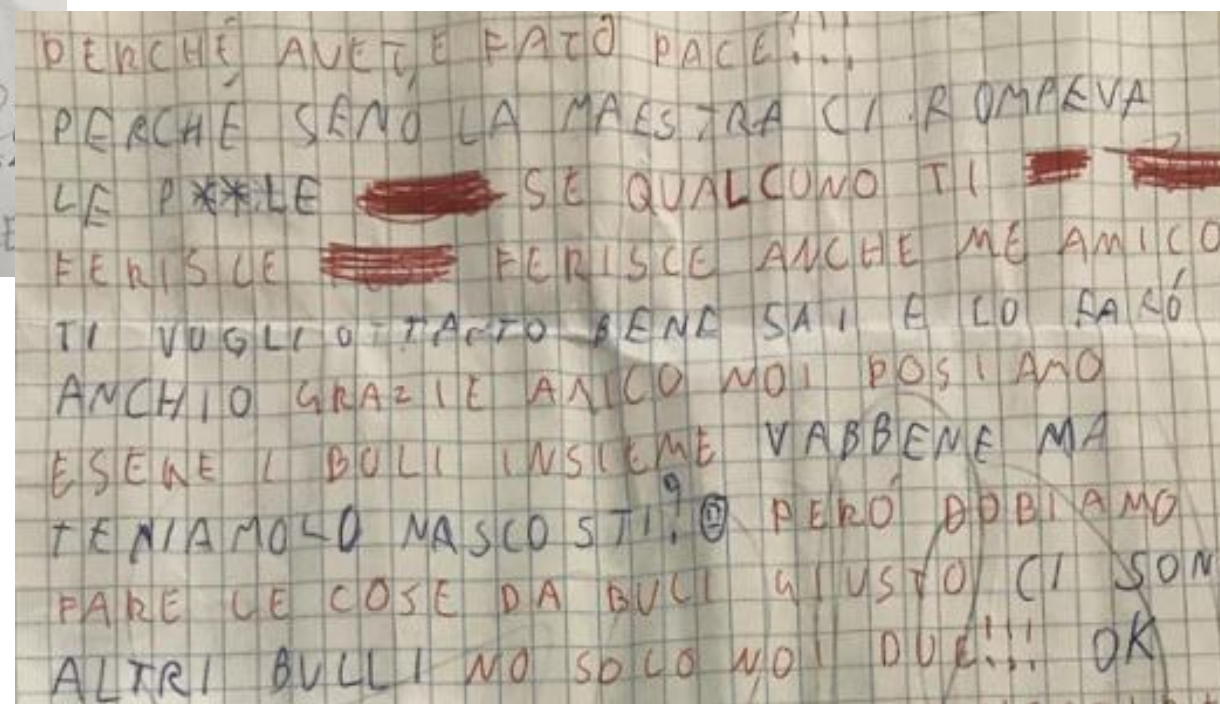 PERCHÉ AVETE FATO PACE!!!
PERCHÉ SENÓ LA MAESTRA CI ROMPEVA
LE P**LE SE QUALCUNO TI
FERISCE FERISCE ANCHE ME AMICO
TI VOGLIO TANTO BENE SAI E LO SARÓ
ANCHIO GRAZIE AMICO NOI POSIAMO
ESERE I BULI INSIEME VABBENE MA
TENIAMOLO NASCOSTI? PERÓ DOBIAMO
FARE LE COSE DA BULI GIUSTO CI SON
ALTRI BULLI NO SOLO NOI DUE!!! OK